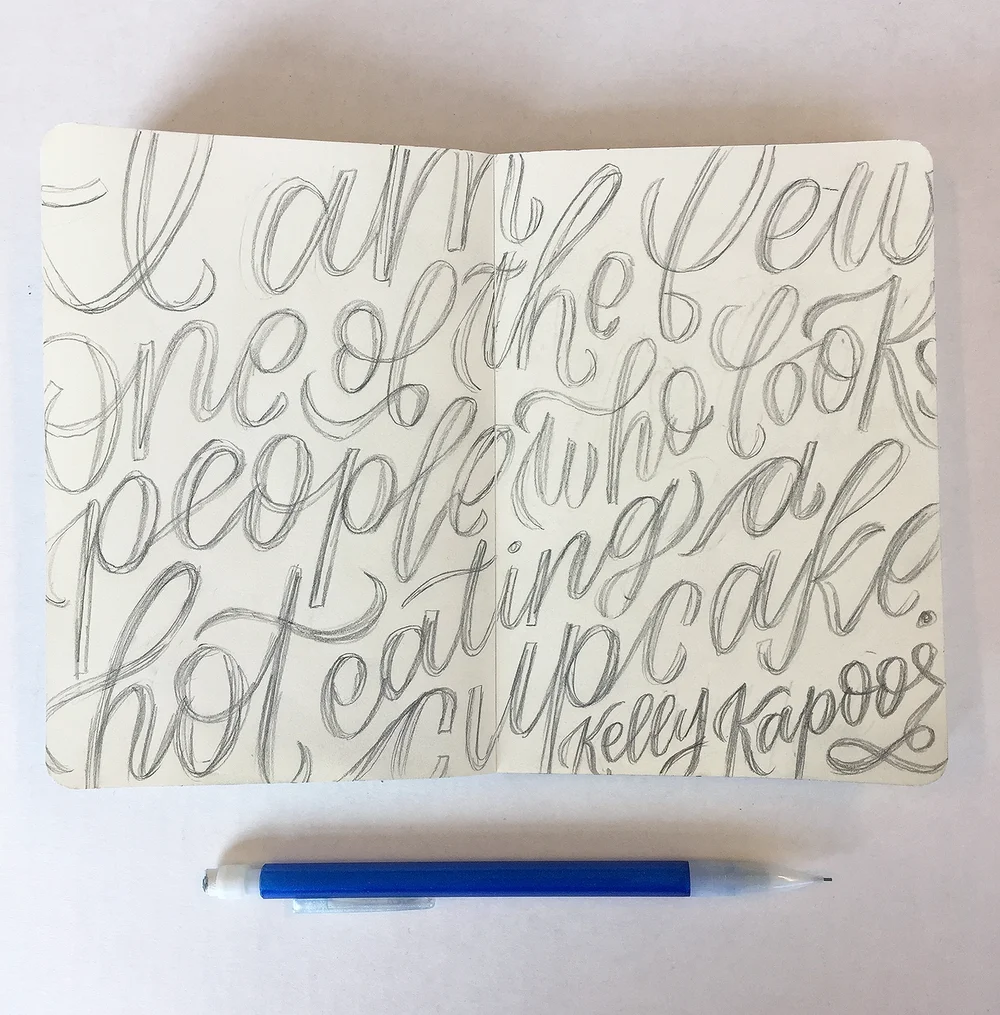 I am
one of the few
people who looks
hot eating a
cupcake.
Kelly Kapoor